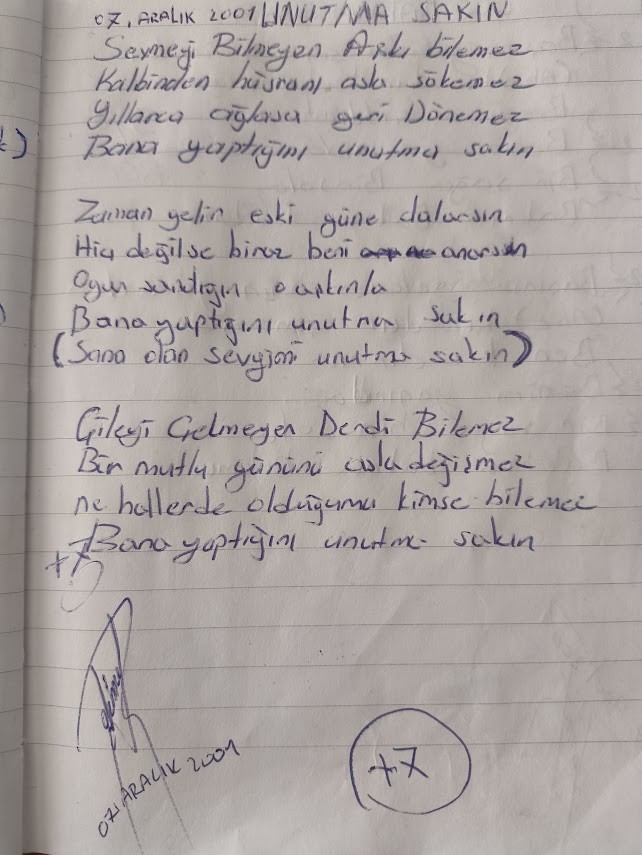 07. ARALIK 2001 UNUTMA SAKIN
Sevmeyi Bilmeyen Aşkı bilemez
Kalbinden hüsranı asla sökemez
Yıllarca ağlasa geri Dönemez
Bana yaptığını unutma sakın
Zaman gelir eski güne dalarsın
Hiç değilse biraz beni anarsın
Oyun sandığın o aşkınla
Bana yaptığını unutma sakın
(Sana olan sevgimi unutma sakın)
Çileyi Çekmeyen Derdi Bilemez
Bir mutlu gününü asla değişmez
ne hallerde olduğumu kimse bilemez
Bana yaptığını unutma sakın
+7
07. ARALIK 2001
+7